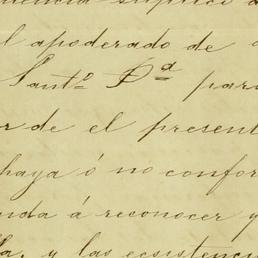 el apoderado de
Santº Dª para
de el present
haya ó no confor
nda á reconocer y
y las ecsistenci